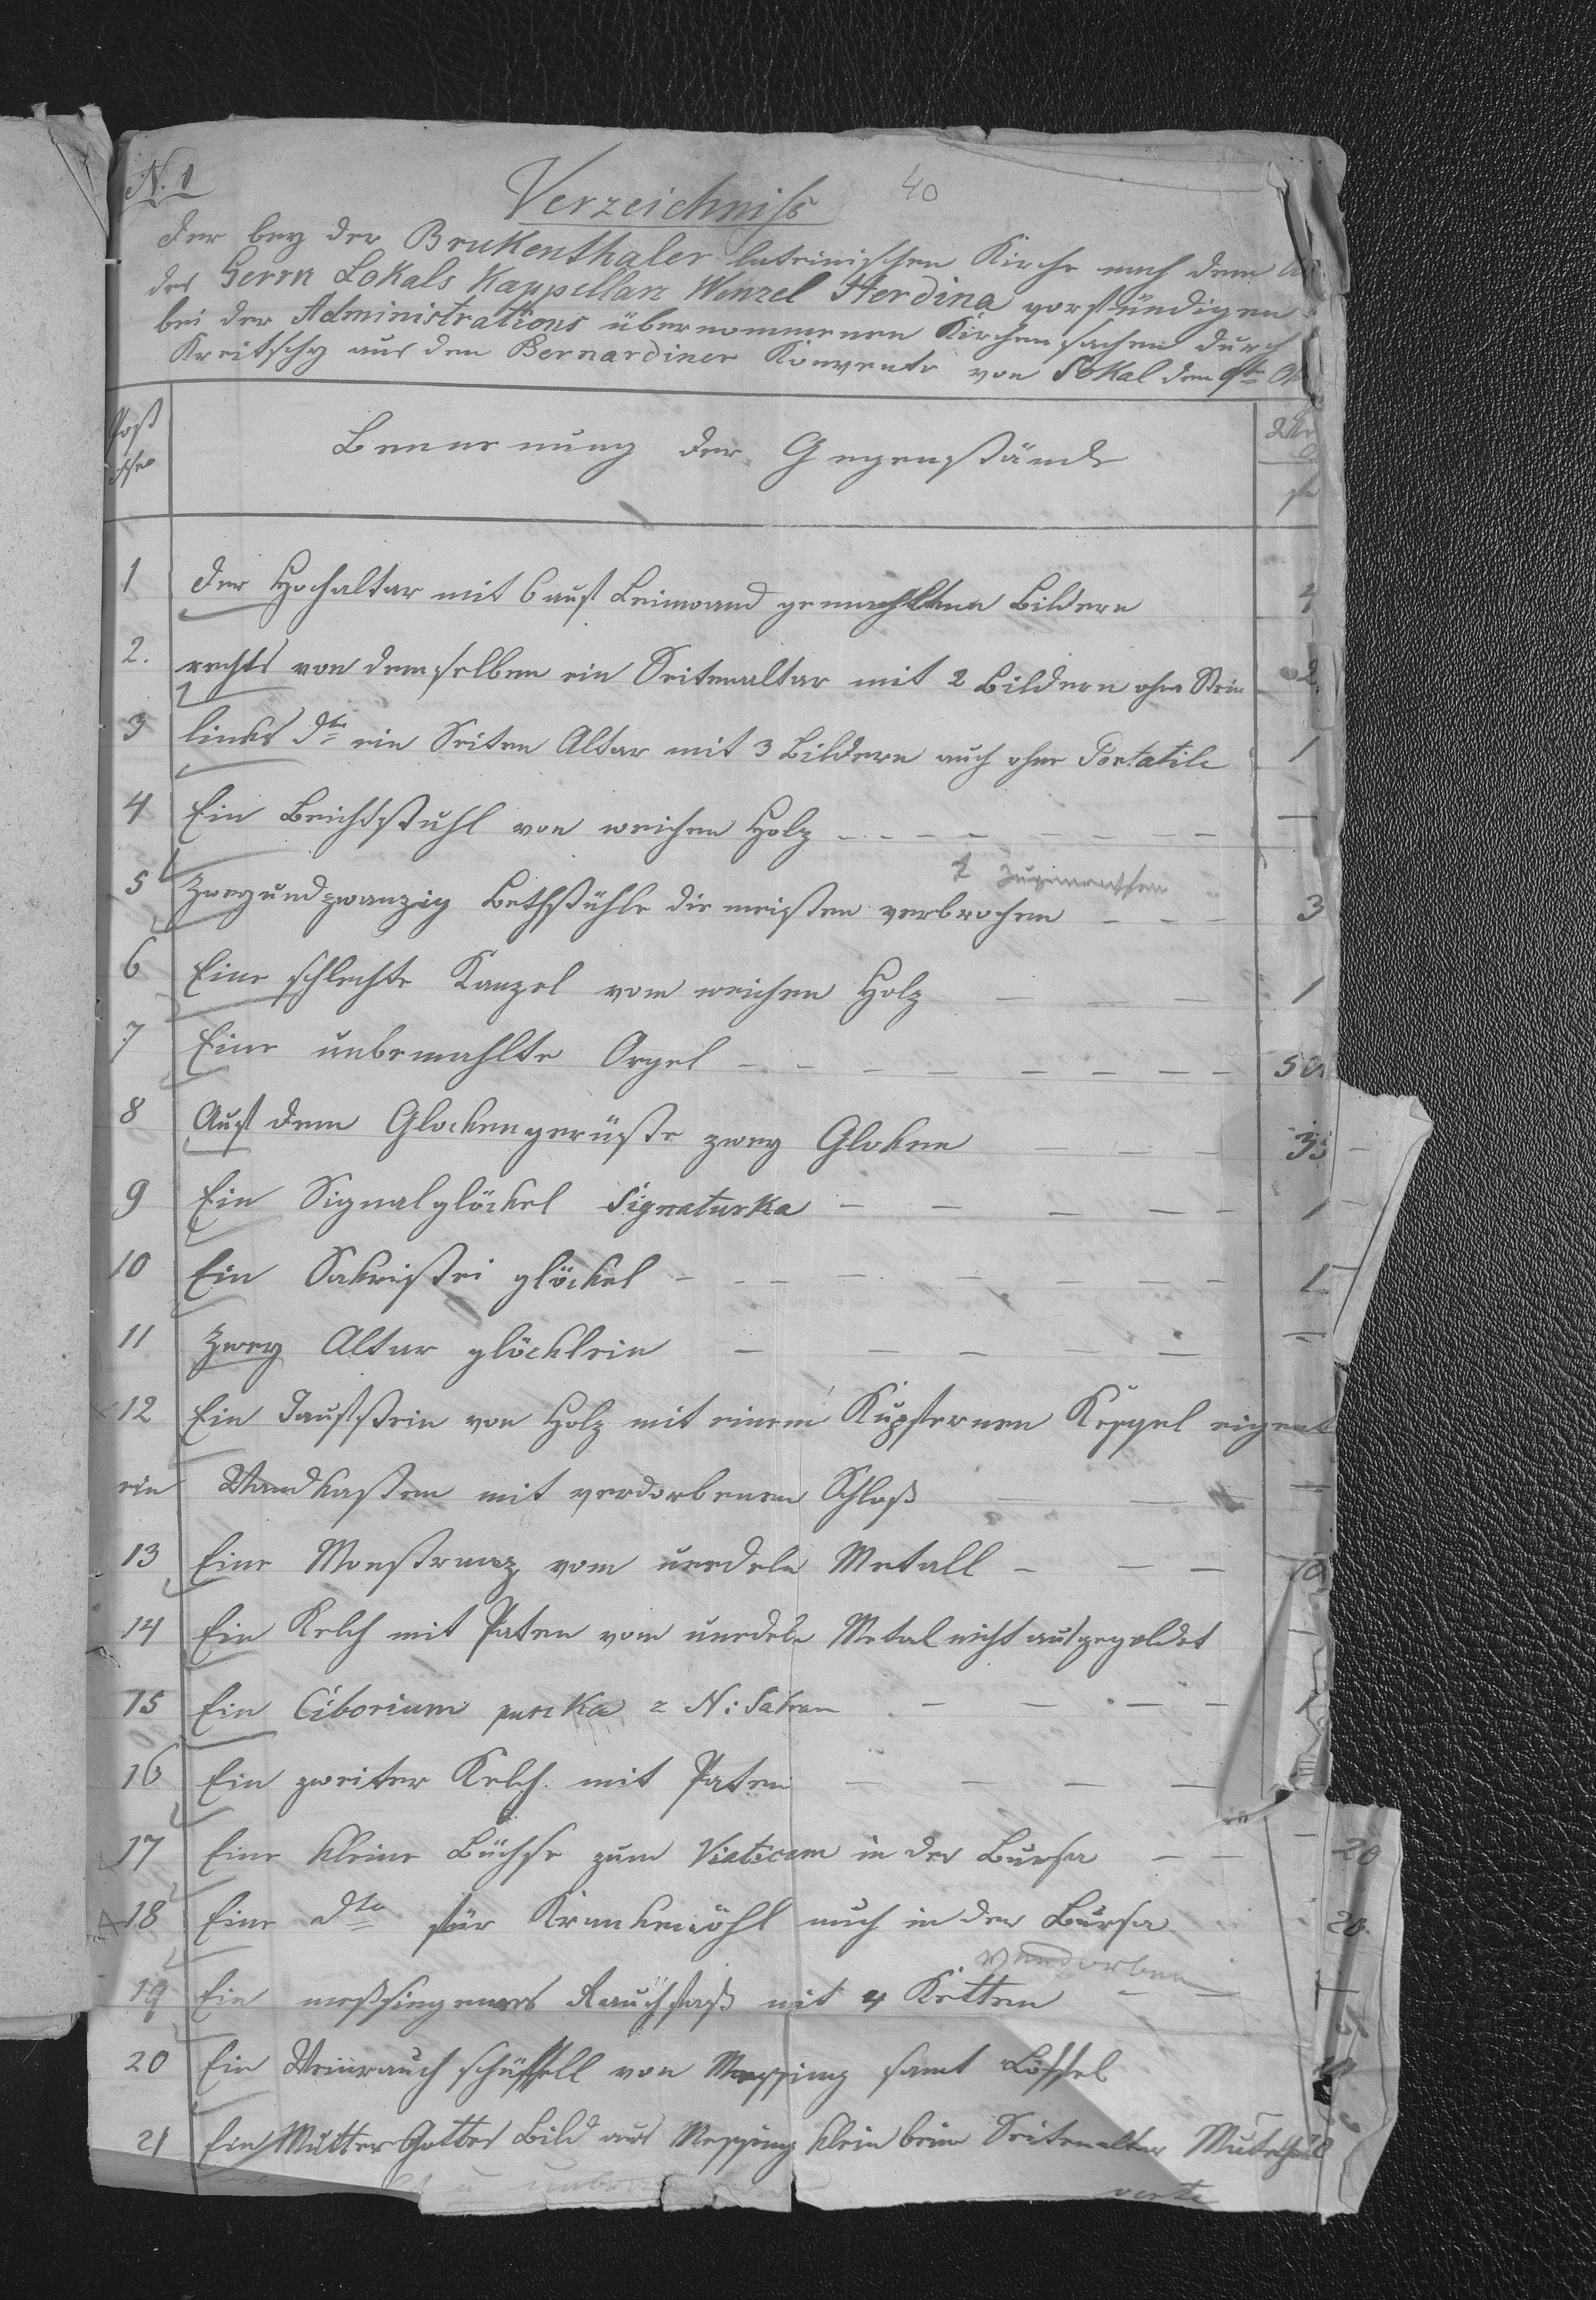 N. 1
40
Verzeichniss
der bey der Brukenthaler lateinischen Kirche nach dem
des Herrn Lokals Kappellan Wenzel Herdina vorständigen
bei der Administrations übernommenen Kirchensachen durch
Kreitschy aus dem Bernardiner Konvente von Sokal den
Post
Benennung der Gegenstände
1 Der Hochaltar mit 6 auf Leinwand gemachlenen Bildern 4
2. rechts von demselben ein Seitenaltar mit 2 Bildern ohne Stein 2
3 links dto ein Seiten Altar mit 3 Bildern auch ohne Portatile 1
4 Ein Beichtstuhl von weichen Holz — — — —
1
5 Zweyundzwanzig Bethstühle die meisten verbrochen — — — 3
6 Eine schlechte Kanzel vom weichen Holz — — — 1
7 Eine unbemahlte Orgel — — — — — — — — 50
8 Auf dem Glockengerüste zwey Gloken — — — 35
9 Ein Signalglöckel Signaturka — — — — — 1
10 Ein Sakristei glöckel — — — — — — — — 1
11 Zwey Altar glöcklein — — — — — —
12 Ein Taufstein von Holz mit einem Kupfernen Kessel
ein Wandkasten mit verdorbenem Schloß — — — —
13 Eine Monstranz vom unedeln Metall — — — 10
14 Ein Kelch mit Paten vom unedeln Metal nicht ausgegoldet
15 Ein Ciborium puszka z N: Sakram — — — — 1
16 Ein zweiter Kelch mit Paten — — — —
17 Eine kleine Büchse zum Viaticum in der Bursa — — — 20
18 Eine dto für Krankenöhl auch in der Bursa 20
verdorben
19 Ein messingenes Rauchfaß mit 4 Ketten — — 1
20 Ein Weinrauch schüssell von Messing samt Löffel
21 Ein Mutter Gottes Bild aus Messing klein beim Seitenaltar
verte